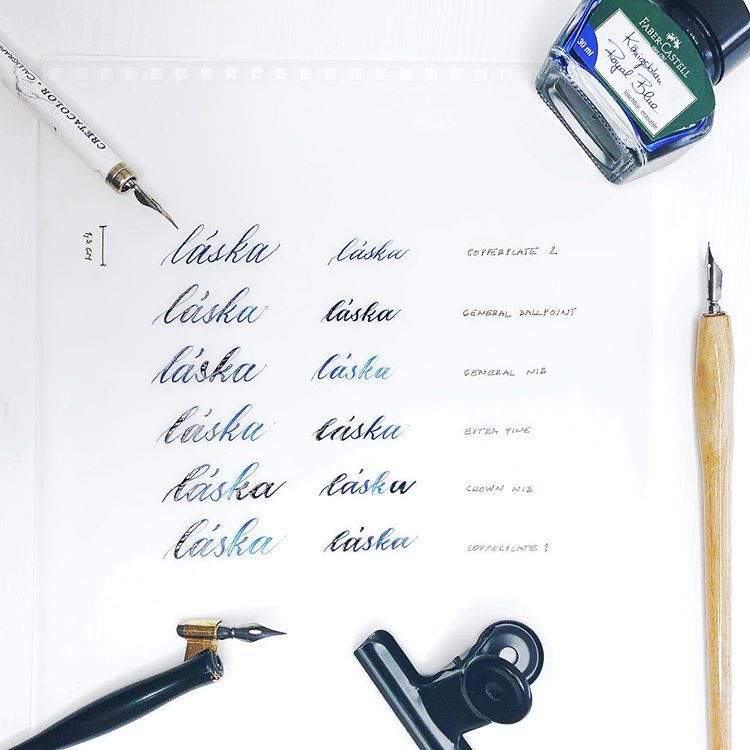 CRETACOLOR · CALLIGRAPHY
FABER-CASTELL
Königsblau
Royal Blue
löschbar erasable
30 ml
1,3 CM
láska láska COPPERPLATE 2
láska láska GENERAL BALLPOINT
láska láska GENERAL NIB
láska láska EXTRA FINE
láska láska CROWN NIB
láska láska COPPERPLATE 1